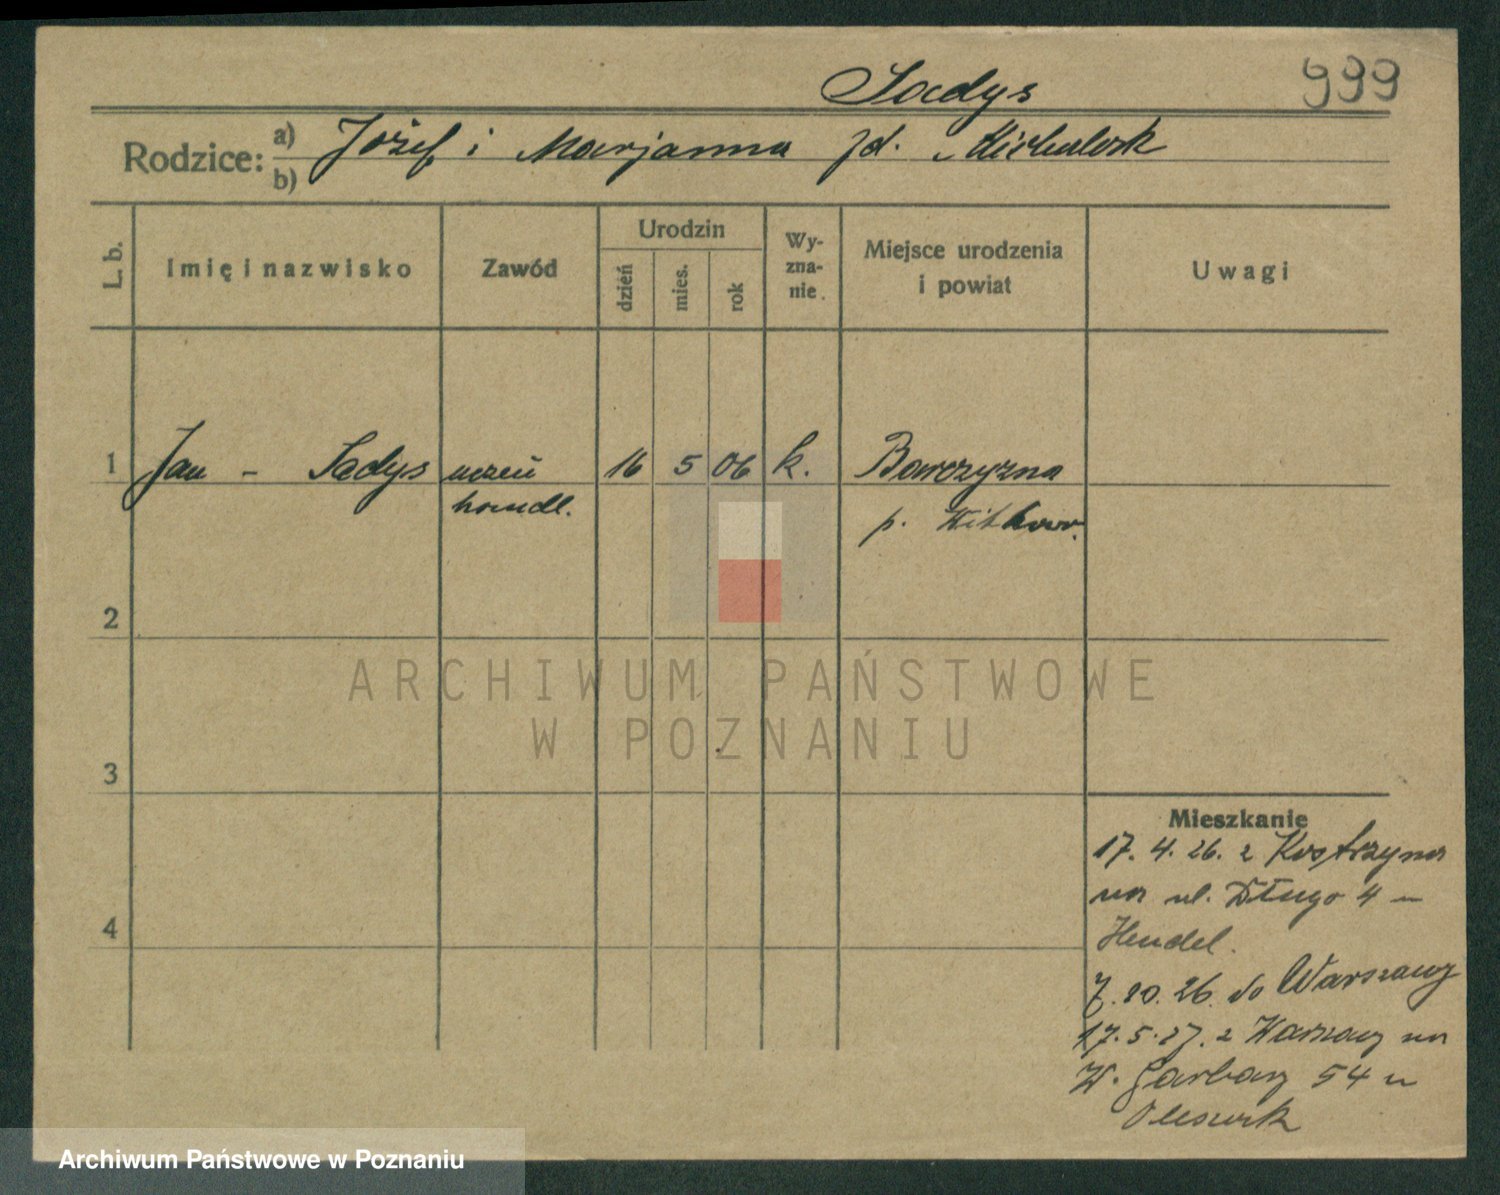 Sadys
999
Rodzice: a) Józef i Marjanna zd. Michalak
b)
L. b.
Imię i nazwisko
Zawód
Urodzin
dzień
mies.
rok
Wy-
zna-
nie.
Miejsce urodzenia
i powiat
Uwagi
1 Jan - Sadys uczeń 16 5 06 k. Barczyzna
handl. p. Witkowo.
2
ARCHIWUM PAŃSTWOWE
W POZNANIU
3
Mieszkanie
17. 4. 26. z Kostrzyna
na ul. Długo 4 u
Hendel.
4
7. 10. 26. do Warszawy
17. 5. 27. z Warszawy na
W. Garbary 54 u
Archiwum Państwowe w Poznaniu